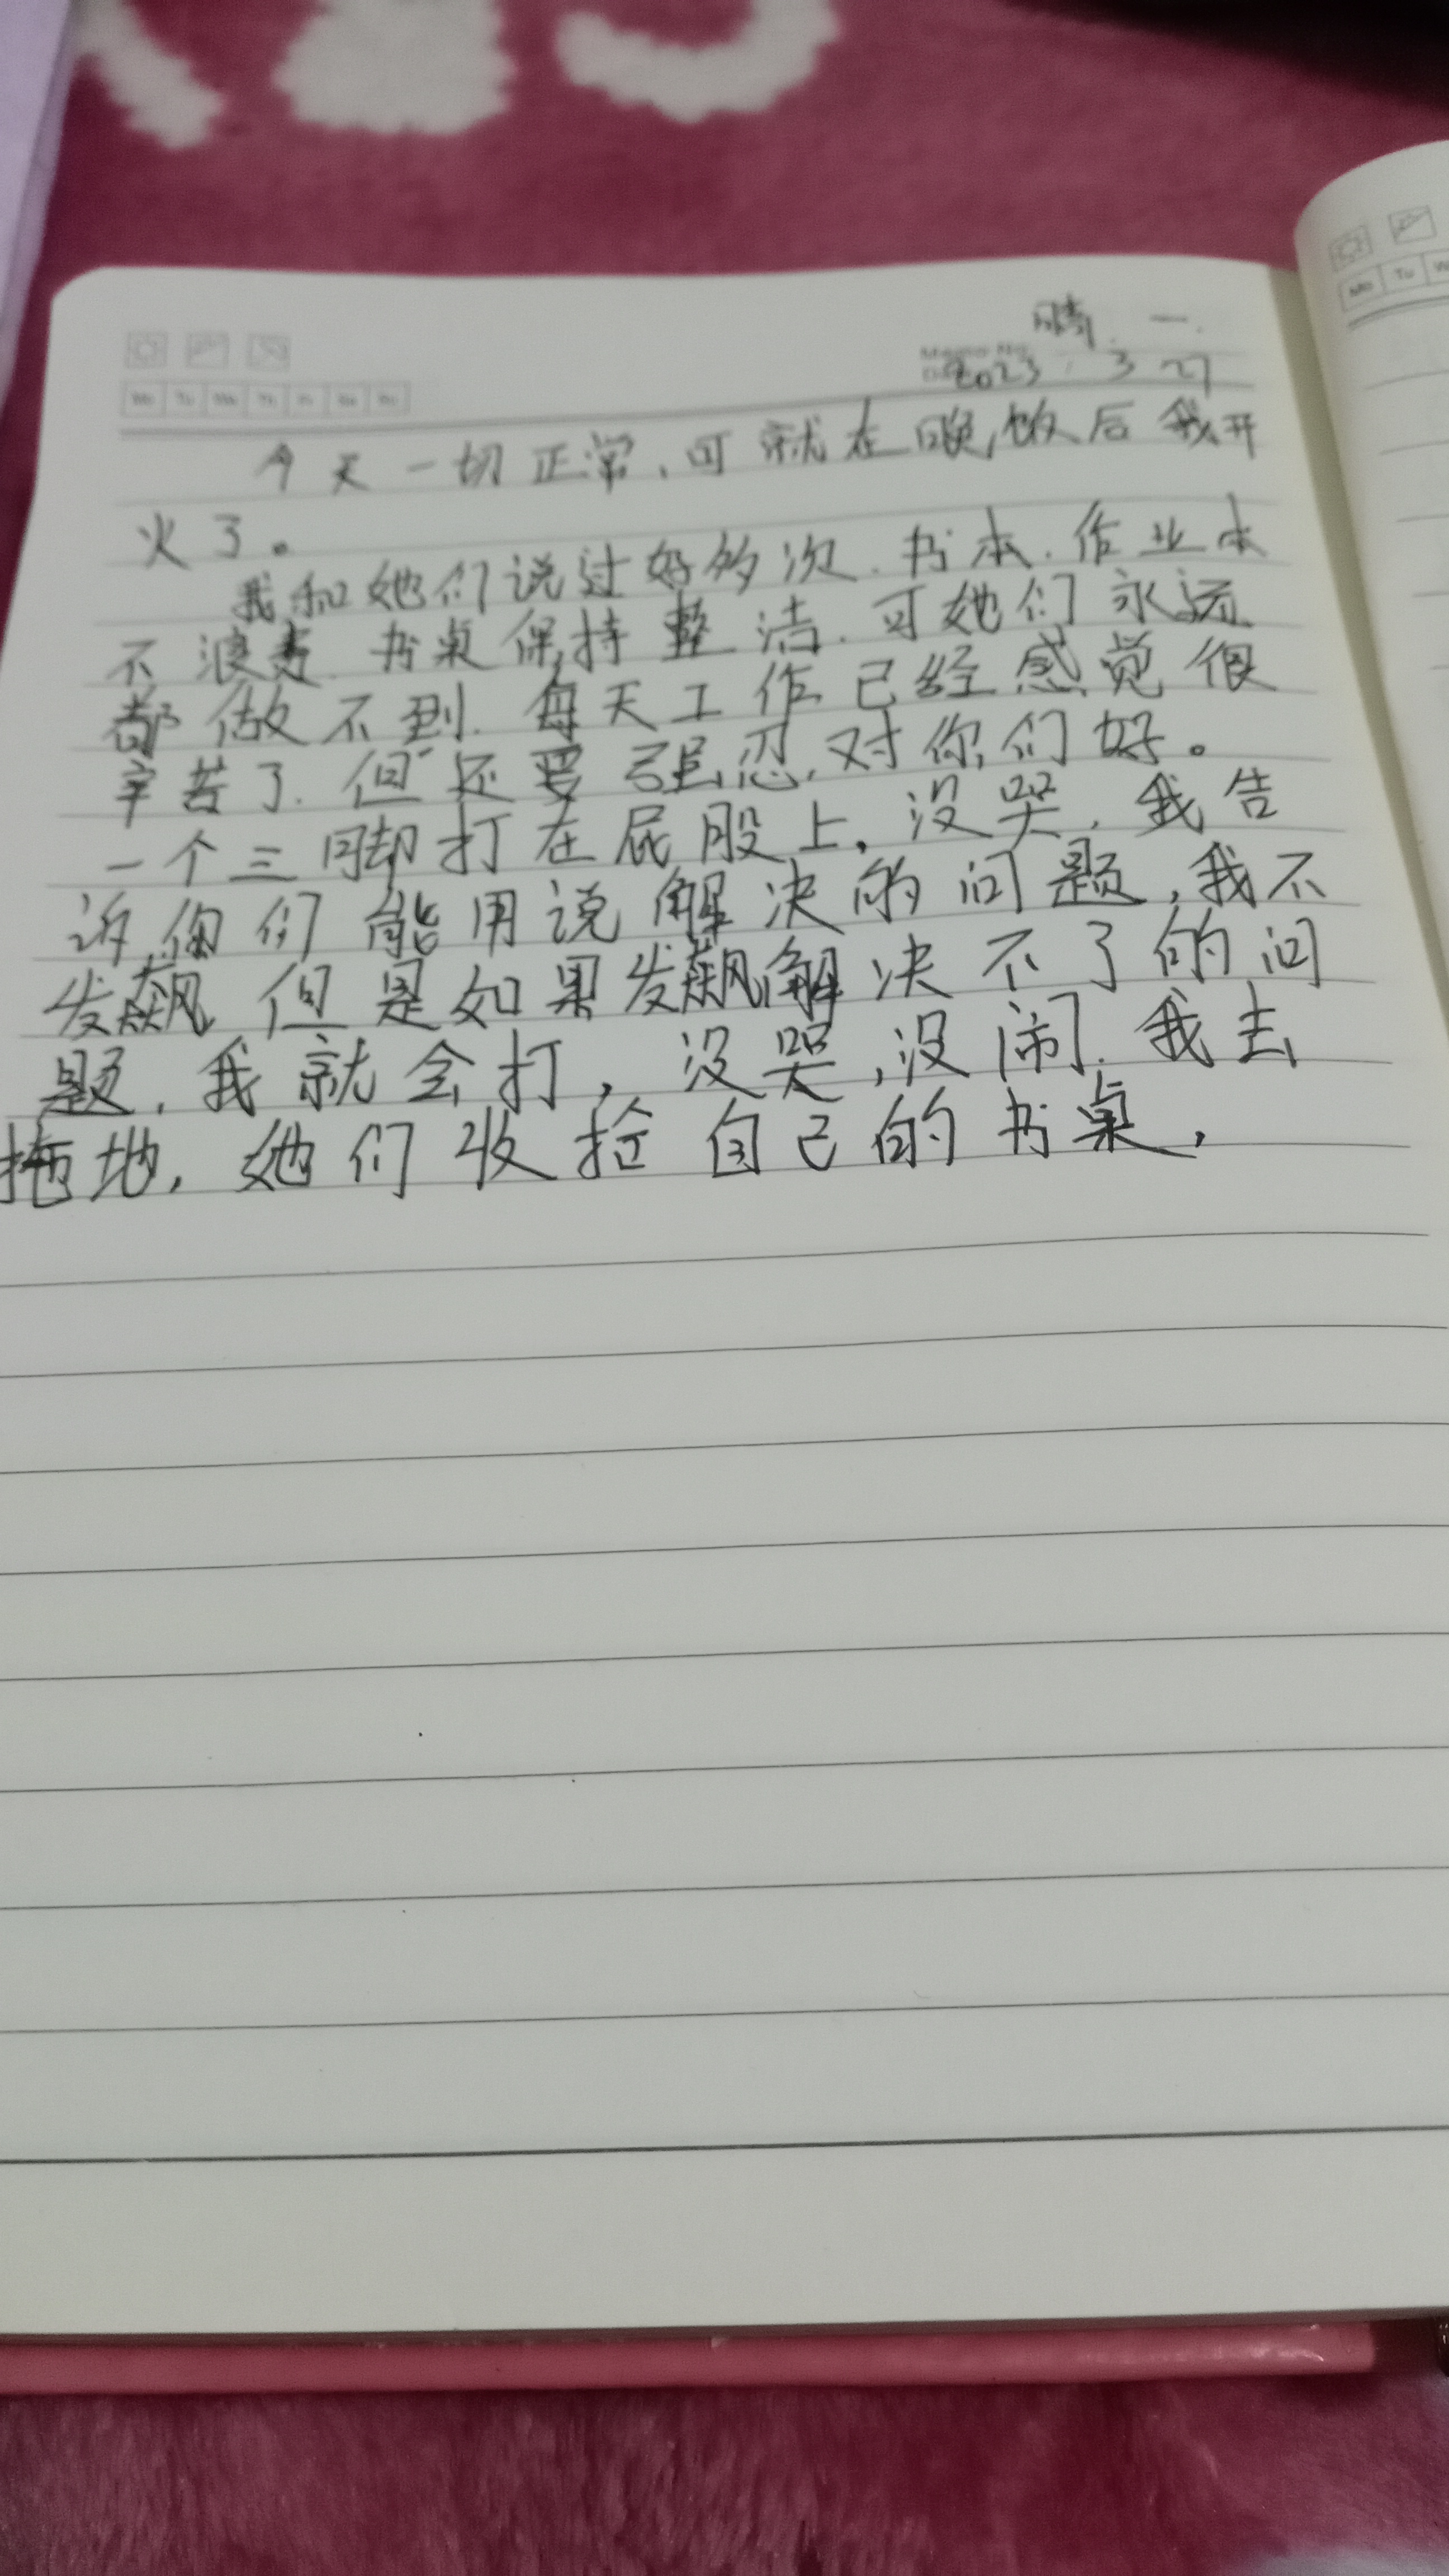 晴 一.
Memo No.
2023. 3 27
Mo Tu We Th Fr Sa Su
Mo Tu W
今天一切正常,可就在晚饭后我开
火了。
我和她们说过好多次.书本.作业本
不浪费.书桌保持整洁.可她们永远
都做不到.每天工作已经感觉很
辛苦了.但还要强忍,对你们好。
一个三脚打在屁股上,没哭,我告
诉你们能用说解决的问题,我不
发飙,但是如果发飙解决不了的问
题,我就会打,没哭,没闹.我去
拖地,她们收捡自己的书桌,